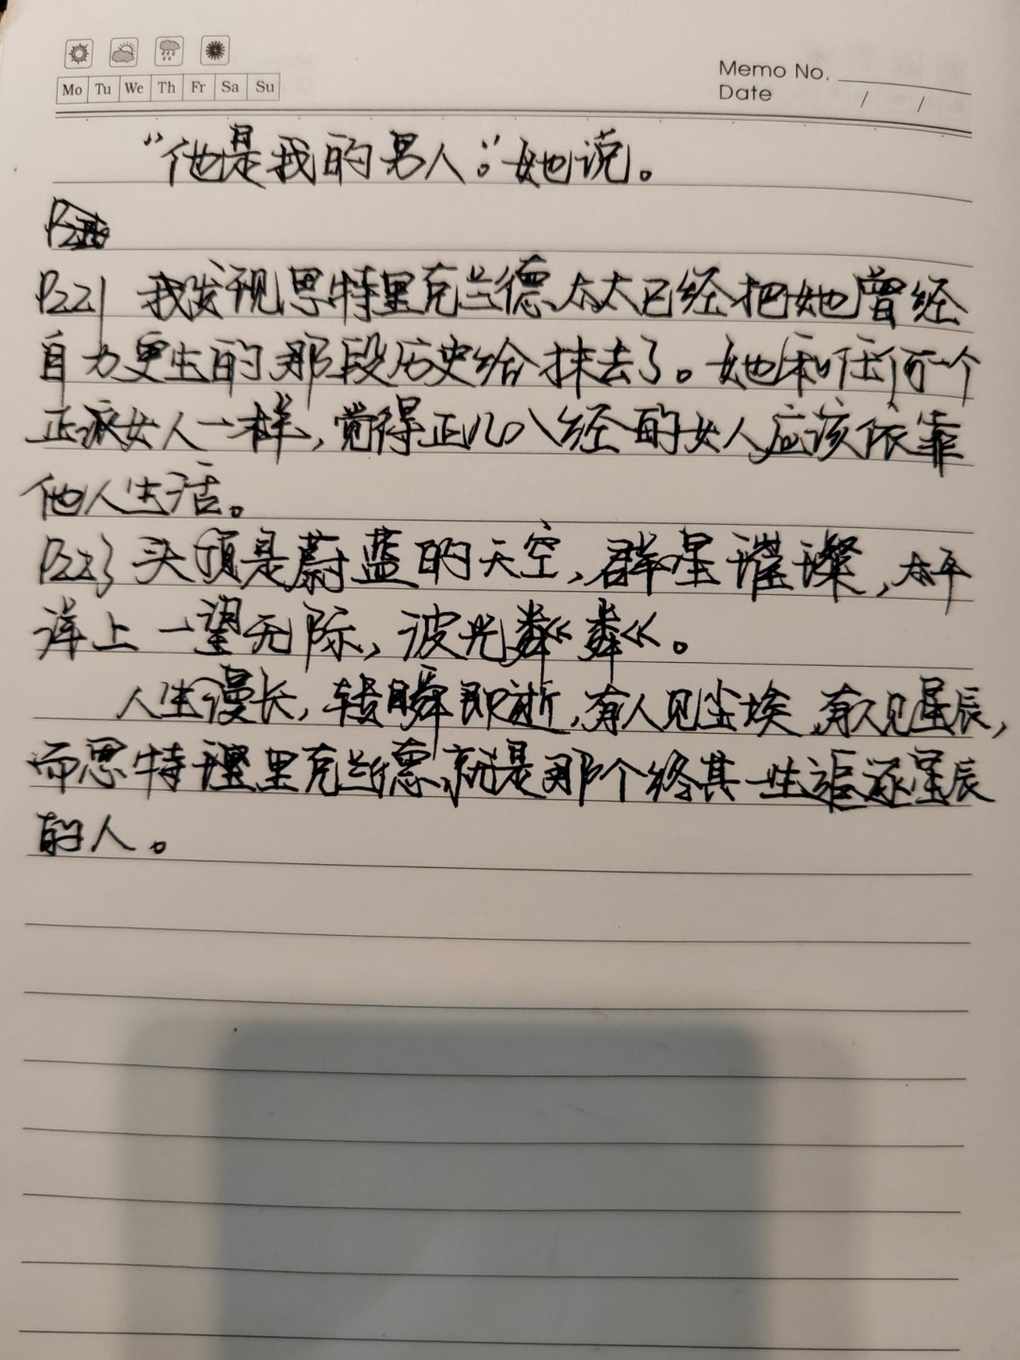 Mo Tu We Th Fr Sa Su
Memo No.
Date / /
“他是我的男人。”她说。
P221 我发现思特里克兰德太太已经把她曾经
自力更生的那段历史给抹去了。她和任何一个
正派女人一样，觉得正儿八经的女人应该依靠
他人生活。
P223 头顶是蔚蓝的天空，群星璀璨，太平
洋上一望无际，波光粼粼。
人生漫长，转瞬即逝，有人见尘埃，有人见星辰，
而思特里克兰德就是那个终其一生追逐星辰
的人。